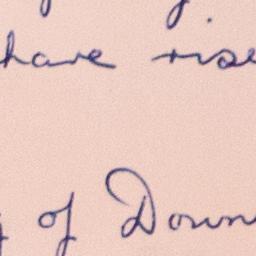 have rise
of Down